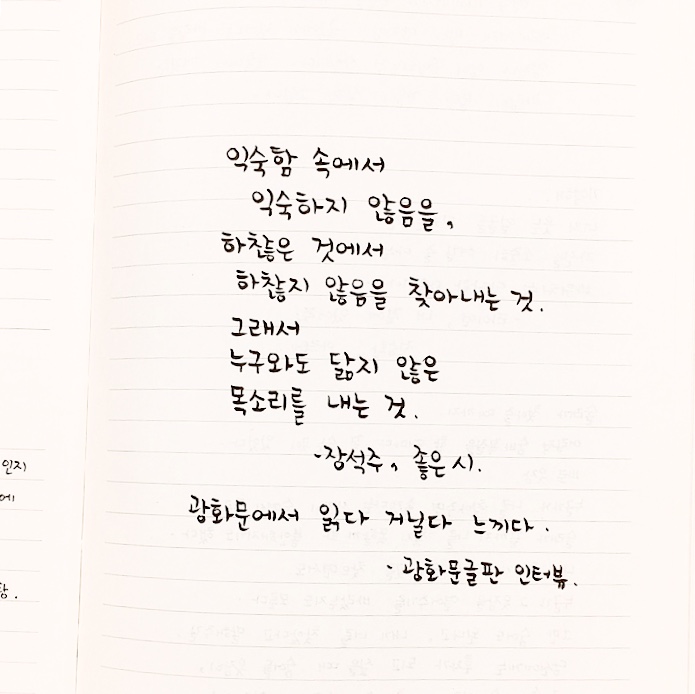 익숙함 속에서
익숙하지 않음을,
하찮은 것에서
하찮지 않음을 찾아내는 것.
그래서
누구와도 닮지 않은
목소리를 내는 것.
-장석주, 좋은 시.
광화문에서 읽다 거닐다 느끼다.
- 광화문글판 인터뷰.
인지
에